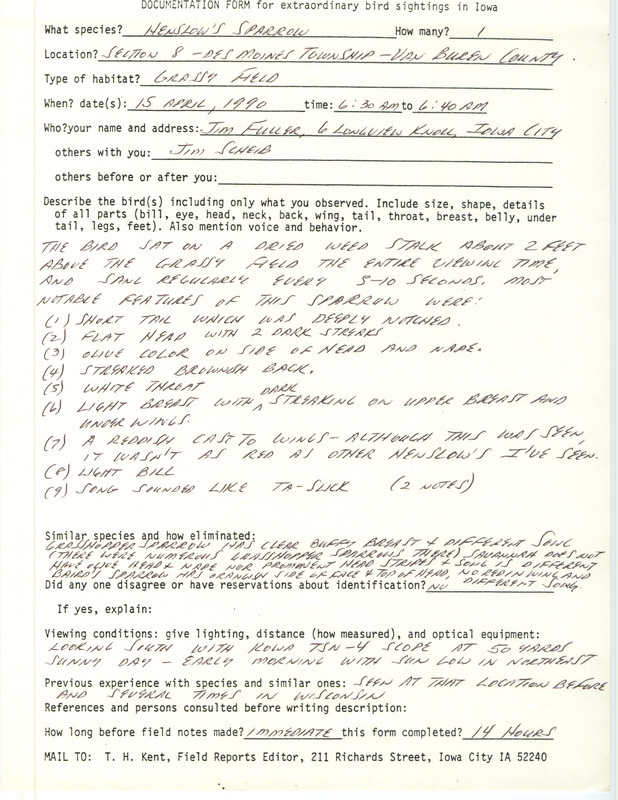 DOCUMENTATION FORM for extraordinary bird sightings in Iowa
What species? HENSLOW'S SPARROW How many? 1
Location? SECTION 8 - DES MOINES TOWNSHIP - VAN BUREN COUNTY.
Type of habitat? GRASSY FIELD
When? date(s): 15 APRIL, 1990 time: 6:30 AM to 6:40 AM
Who?your name and address: JIM FULLER, 6 LONGVIEW KNOLL, IOWA CITY
others with you: JIM SCHEIB
others before or after you:
Describe the bird(s) including only what you observed. Include size, shape, details
of all parts (bill, eye, head, neck, back, wing, tail, throat, breast, belly, under
tail, legs, feet). Also mention voice and behavior.
THE BIRD SAT ON A DRIED WEED STALK ABOUT 2 FEET
ABOVE THE GRASSY FIELD THE ENTIRE VIEWING TIME,
AND SANG REGULARLY EVERY 5-10 SECONDS. MOST
NOTABLE FEATURES OF THIS SPARROW WERE:
(1) SHORT TAIL WHICH WAS DEEPLY NOTCHED.
(2) FLAT HEAD WITH 2 DARK STREAKS
(3) OLIVE COLOR ON SIDE OF HEAD AND NAPE.
(4) STREAKED BROWNISH BACK.
(5) WHITE THROAT
(6) LIGHT BREAST WITH DARK STREAKING ON UPPER BREAST AND
UNDER WINGS.
(7) A REDDISH CAST TO WINGS - ALTHOUGH THIS WAS SEEN,
IT WASN'T AS RED AS OTHER HENSLOW'S I'VE SEEN.
(8) LIGHT BILL
(9) SONG SOUNDED LIKE TA-SLICK (2 NOTES)
Similar species and how eliminated:
GRASSHOPPER SPARROW HAS CLEAR BUFFY BREAST & DIFFERENT SONG
(THERE WERE NUMEROUS GRASSHOPPER SPARROWS THERE) SAVANNAH DOES NOT
HAVE OLIVE HEAD & NAPE NOR PROMINENT HEAD STRIPES & SONG IS DIFFERENT
BAIRD'S SPARROW HAS ORANGISH SIDE OF FACE & TOP OF HEAD, NO RED IN WING AND
DIFFERENT SONG.
Did any one disagree or have reservations about identification? NO
If yes, explain:
Viewing conditions: give lighting, distance (how measured), and optical equipment:
LOOKING SOUTH WITH KOWA TSN-4 SCOPE AT 50 YARDS
SUNNY DAY - EARLY MORNING WITH SUN LOW IN NORTHEAST
Previous experience with species and similar ones: SEEN AT THAT LOCATION BEFORE
AND SEVERAL TIMES IN WISCONSIN
References and persons consulted before writing description:
How long before field notes made? IMMEDIATE this form completed? 14 HOURS
MAIL TO: T. H. Kent, Field Reports Editor, 211 Richards Street, Iowa City IA 52240